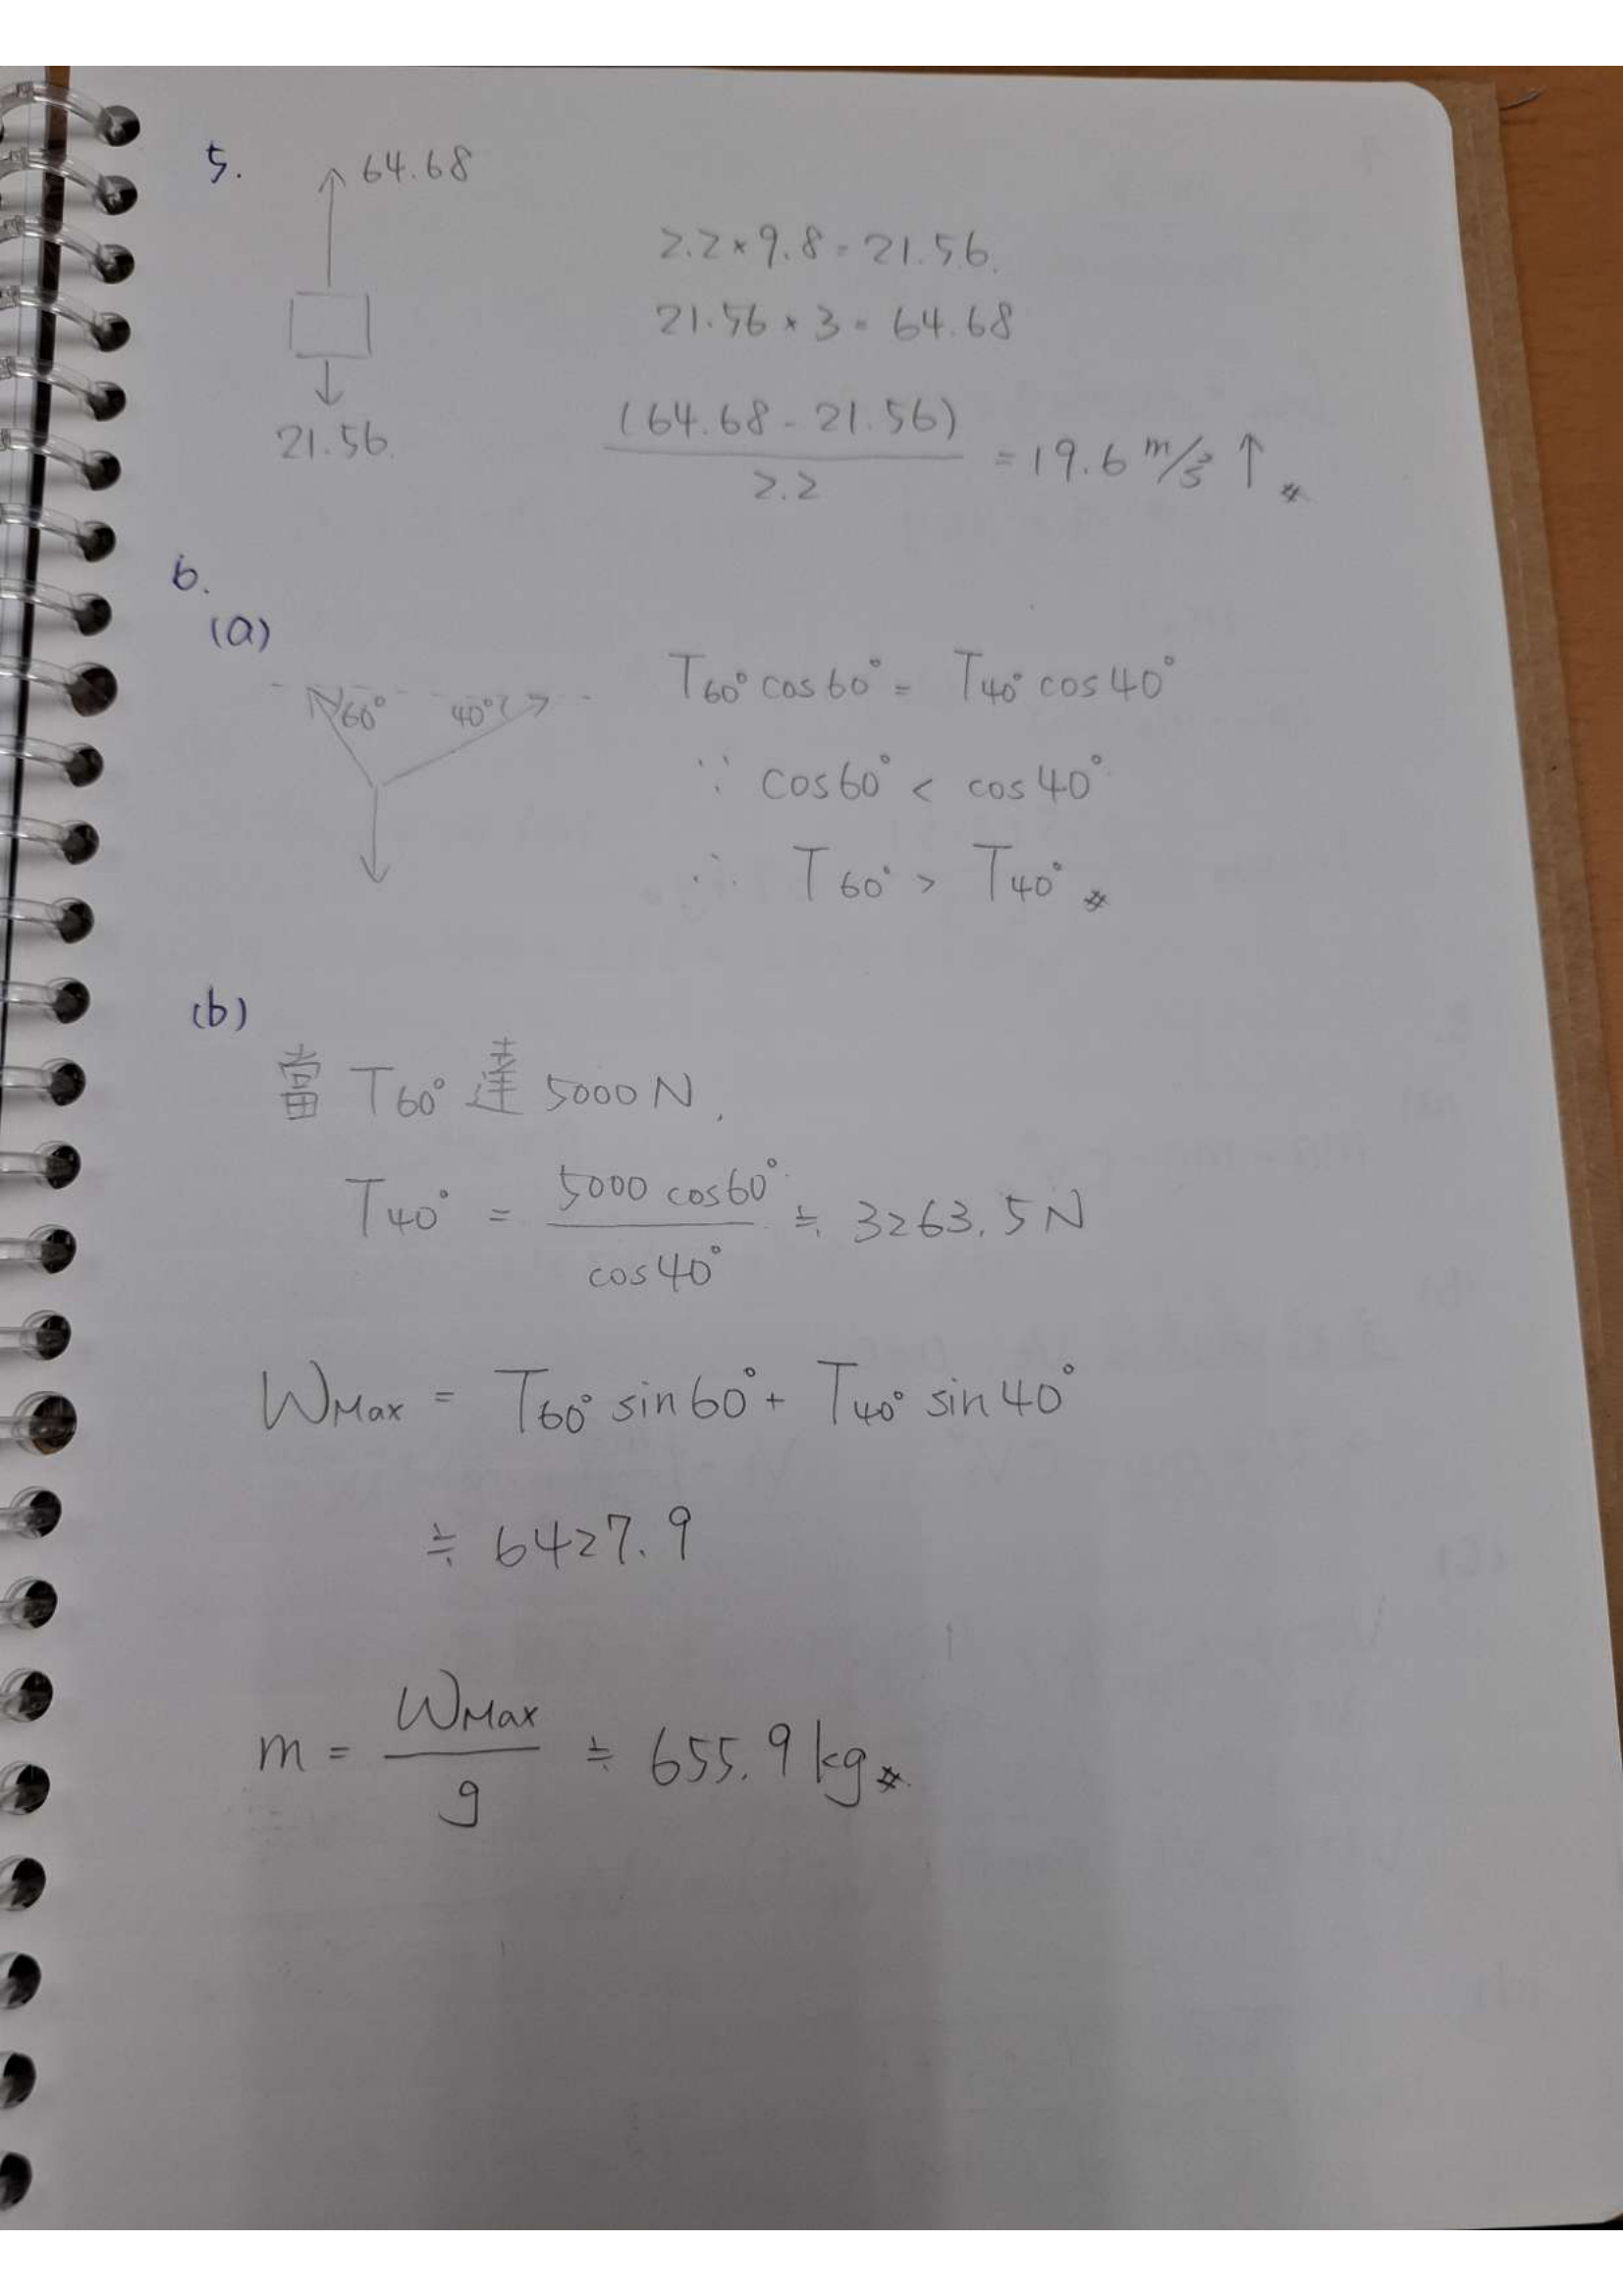 5.
64.68
21.56.
2.2×9.8=21.56.
21.56×3=64.68
(64.68-21.56)
2.2
=19.6 m/s² ↑ #
6.
(a)
60° 40°
T60° cos60° = T40° cos40°
∵ cos60° < cos40°
∴ T60° > T40° #
(b)
當 T60° 達 5000N,
T40° = 5000 cos60° / cos40° ≒ 3263.5N
WMax = T60° sin60° + T40° sin40°
≒ 6427.9
m = WMax / g ≒ 655.9kg #